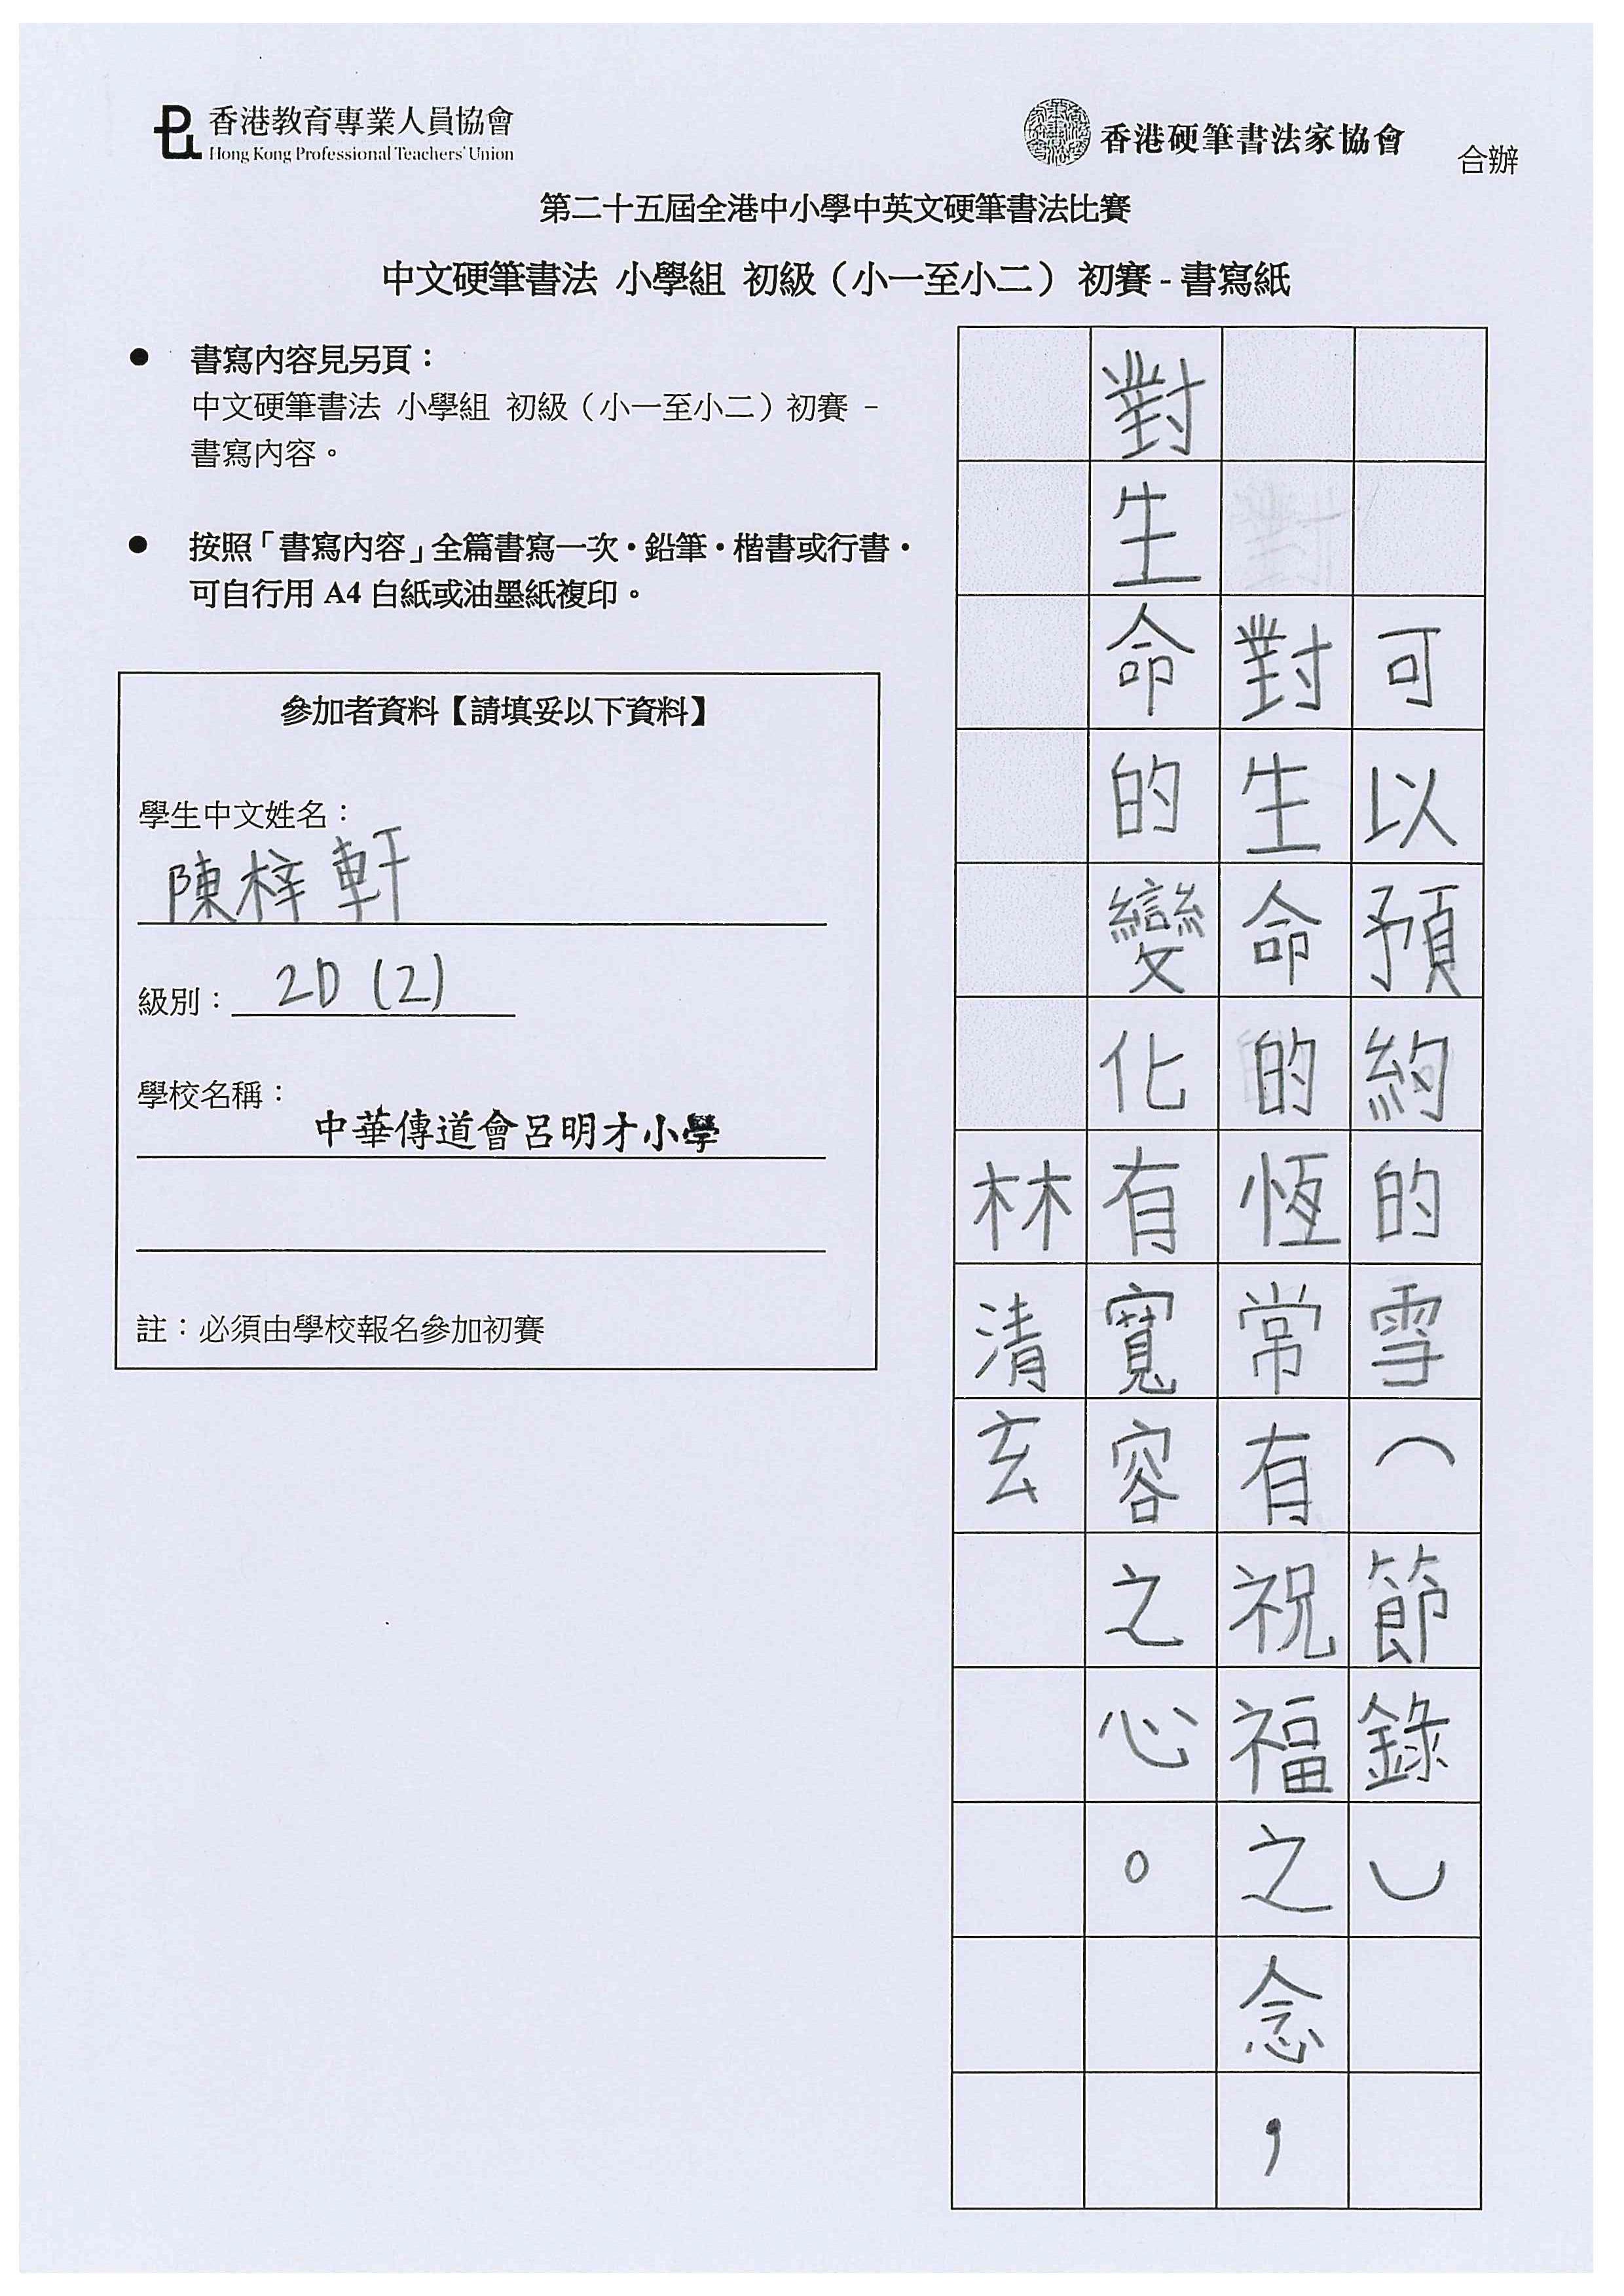 香港教育專業人員協會
Hong Kong Professional Teachers' Union
香港硬筆書法家協會
合辦
第二十五屆全港中小學中英文硬筆書法比賽
中文硬筆書法 小學組 初級（小一至小二）初賽 - 書寫紙
● 書寫內容見另頁：
中文硬筆書法 小學組 初級（小一至小二）初賽 -
書寫內容。
● 按照「書寫內容」全篇書寫一次・鉛筆・楷書或行書・
可自行用 A4 白紙或油墨紙複印。
參加者資料【請填妥以下資料】
學生中文姓名：
陳梓軒
級別：2D (2)
學校名稱：
中華傳道會呂明才小學
註：必須由學校報名參加初賽
可以預約的雪（節錄）
對生命的恆常有祝福之念，
對生命的變化有寬容之心。
林清玄